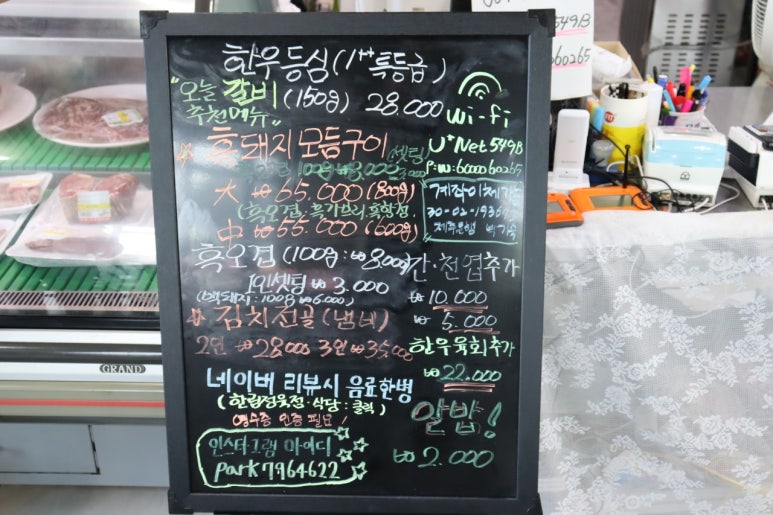 549B
60265
한우등심(1++ 특등급)
"오늘 추천메뉴" 갈비 (150g) 28.000
wi-fi
U+Net 549B
P:w: 6000060265
흑돼지 모듬구이
大 ₩65.000 (800g)
(흑오겹. 흑가브리. 흑항정)
中 ₩55.000 (600g)
계좌이체가능
제주은행
흑오겹 (100g: ₩8,000)
1인셋팅 ₩3.000
(백돼지: 100g ₩6.000)
김치전골 (냄비)
2인 ₩28000 3인 ₩35,000
네이버 리뷰시 음료한병
(한림정육점.식당: 클릭)
영수증 인증 필요!
인스타그램 아이디
park7964622
간·천엽추가
₩10.000
₩5.000
한우육회추가
₩22.000
알밥!
₩2.000
GRAND